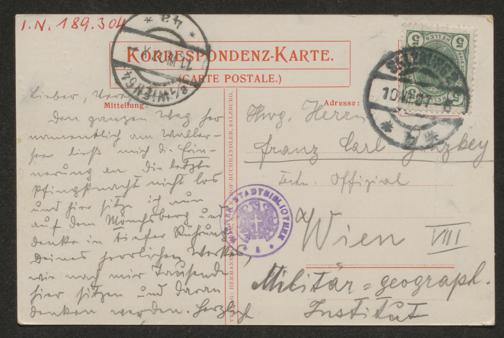 I.N. 189.304
KORRESPONDENZ-KARTE.
(CARTE POSTALE.)
Mitteilung:
Adresse:
Lieber,
den ganzen Weg her
namentlich am Waller-
see ließ mich die Erin-
nerung an die letzte
Pfingstnacht nicht los
und hier sitz ich nun
auf dem Mönchsberg und
denke in tiefer Rührung
Deines herrlichen Werkes,
wie noch mir Tausende
hier sitzen und daran
denken werden. Herzlichst
Hwg. Herrn
Franz Carl Ginzkey
Tech. Offizial
Wien VIII
Militär-geograph.
Institut
WIENER STADTBIBLIOTHEK
SALZBURG
WIEN 64
5 5